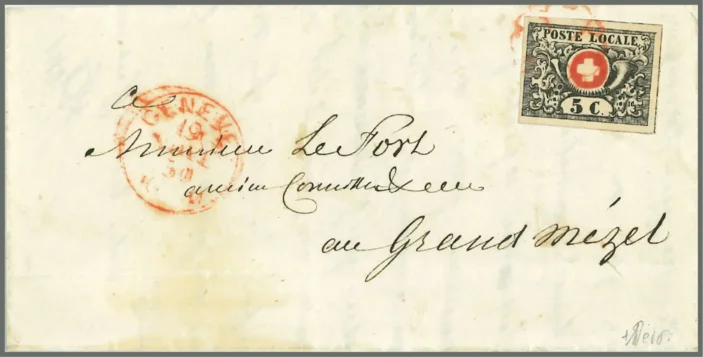 POSTE LOCALE
5 C.
GENÈVE
19
a
Monsieur Le Fort
ancien Conseiller
au Grand Mézel